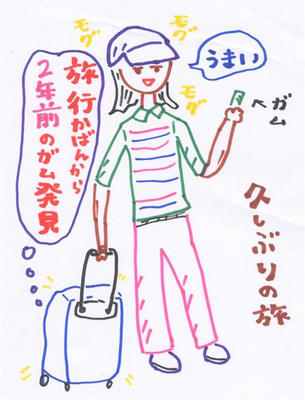 モグ
モグ
モグ
うまい
ガム
旅行かばんから
2年前のガム発見
久しぶりの旅